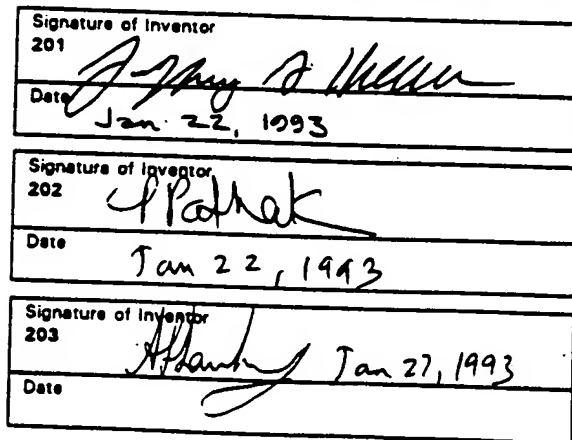 Signature of Inventor
201
Date
Jan. 22, 1993
Signature of Inventor
202
Pathak
Date
Jan 22, 1993
Signature of Inventor
203
Jan 27, 1993
Date